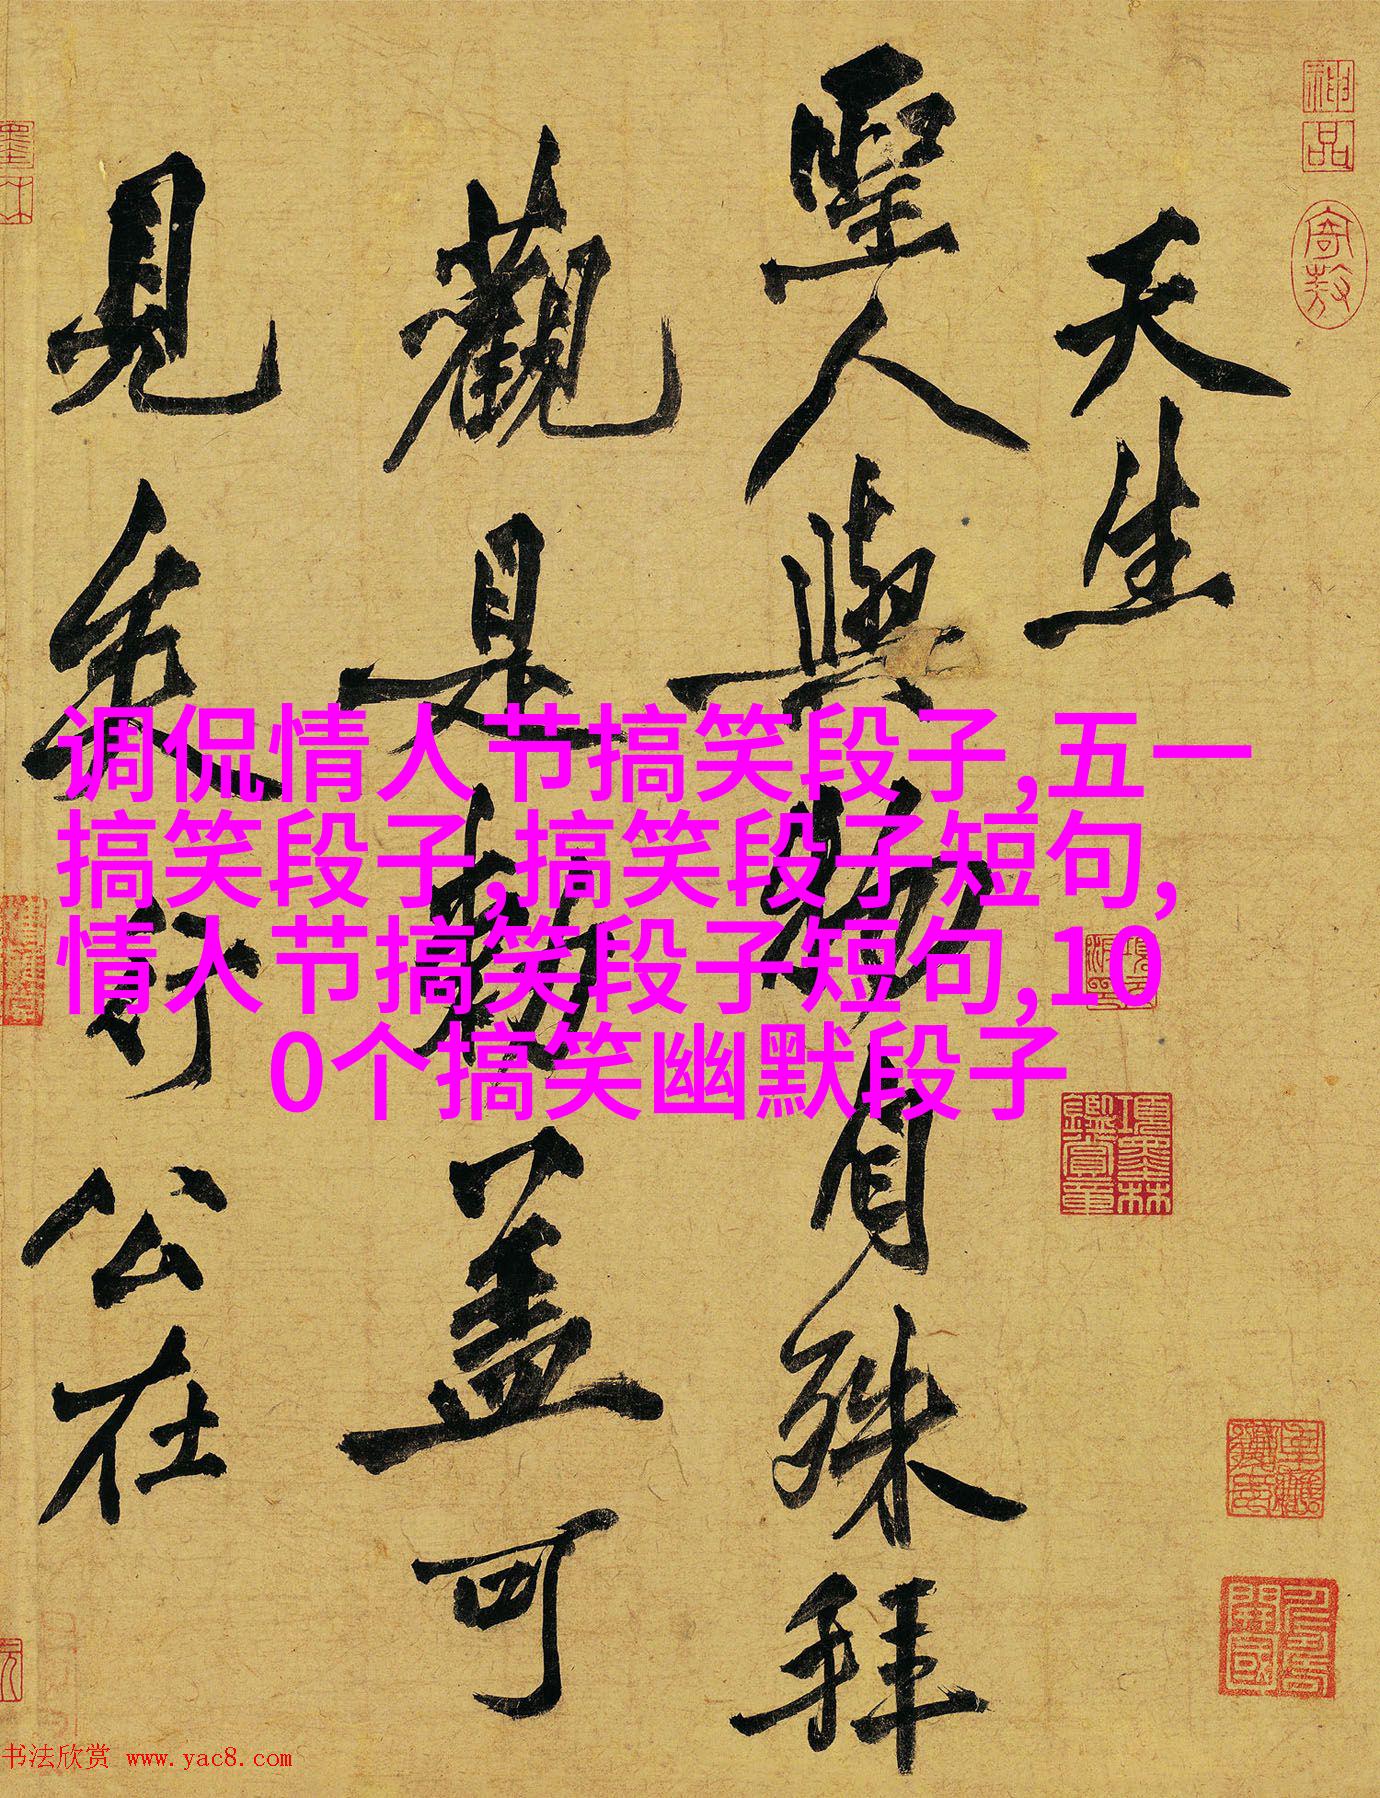 天生
聖人與物自殊拜
觀是物盖可
見矣公在
调侃情人节搞笑段子,五一
搞笑段子,搞笑段子短句,
情人节搞笑段子短句,10
0个搞笑幽默段子
神品
項墨林
鑑賞章
书法欣赏 www.yac8.com